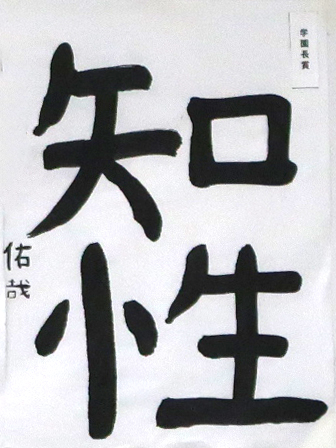 学園長賞
知
性
佑哉